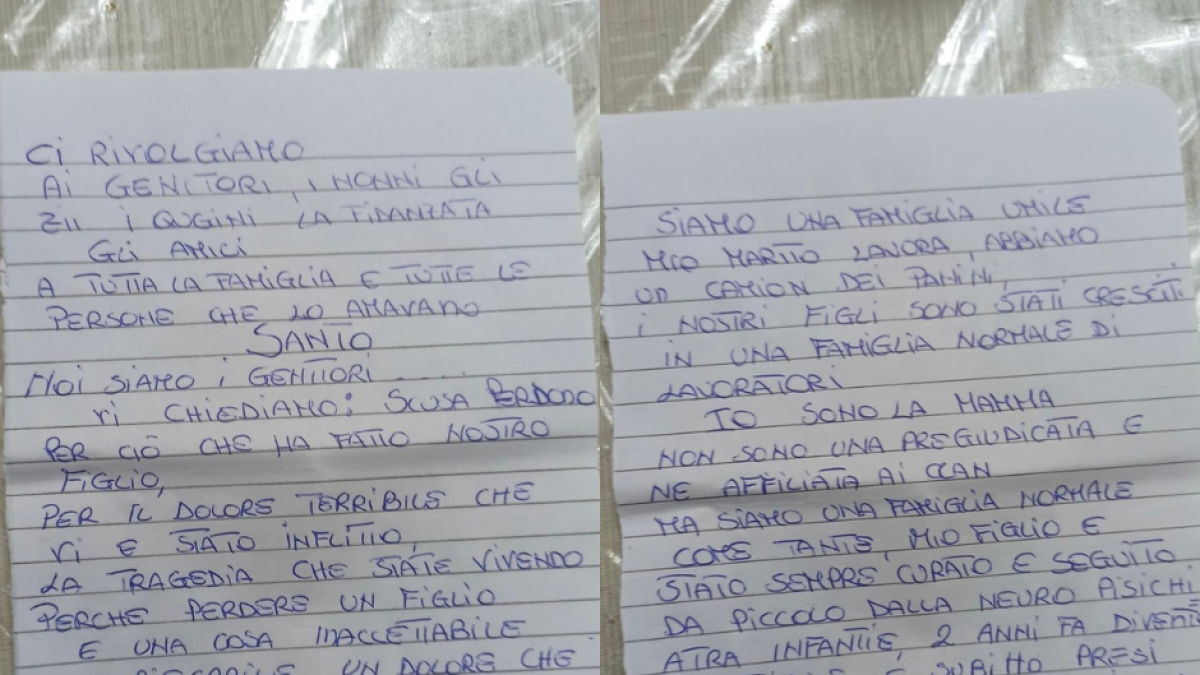 Ci RIVOLGIAMO
Ai GENITORI, i NONNI GLI
ZII i CUGINI LA FIDANZATA
GLi AMICI
A TUTTA LA FAMIGLIA E TUTTE LE
PERSONE CHE LO AMAVANO
SANTO
NOi SIAMO i GENITORI .....
Vi CHIEDIAMO: SCUSA PERDONO
PER CIÒ CHE HA FATTO NOSTRO
FIGLIO,
PER IL DOLORE TERRIBILE CHE
Vi E STATO INFLITTO,
LA TRAGEDIA CHE STATE VIVENDO
PERCHE PERDERE UN FIGLIO
E UNA COSA INACCETTABILE
UN DOLORE CHE
SIAMO UNA FAMIGLIA UMILE
MIO MARITO LAVORA, ABBIAMO
UN CAMION DEI PANINI,
i NOSTRI FIGLI SONO STATI CRESCITI
IN UNA FAMIGLIA NORMALE DI
LAVORATORI
IO SONO LA MAMMA
NON SONO UNA PREGIUDICATA E
NE AFFILIATA Ai CLAN
MA SIAMO UNA FAMIGLIA NORMALE
COME TANTE, MIO FIGLIO E
STATO SEMPRE CURATO E SEGUITO
DA PICCOLO DALLA NEURO PISICHI
ATRA INFANTIE, 2 ANNI FA DIVENT
SUBITTO PRESI